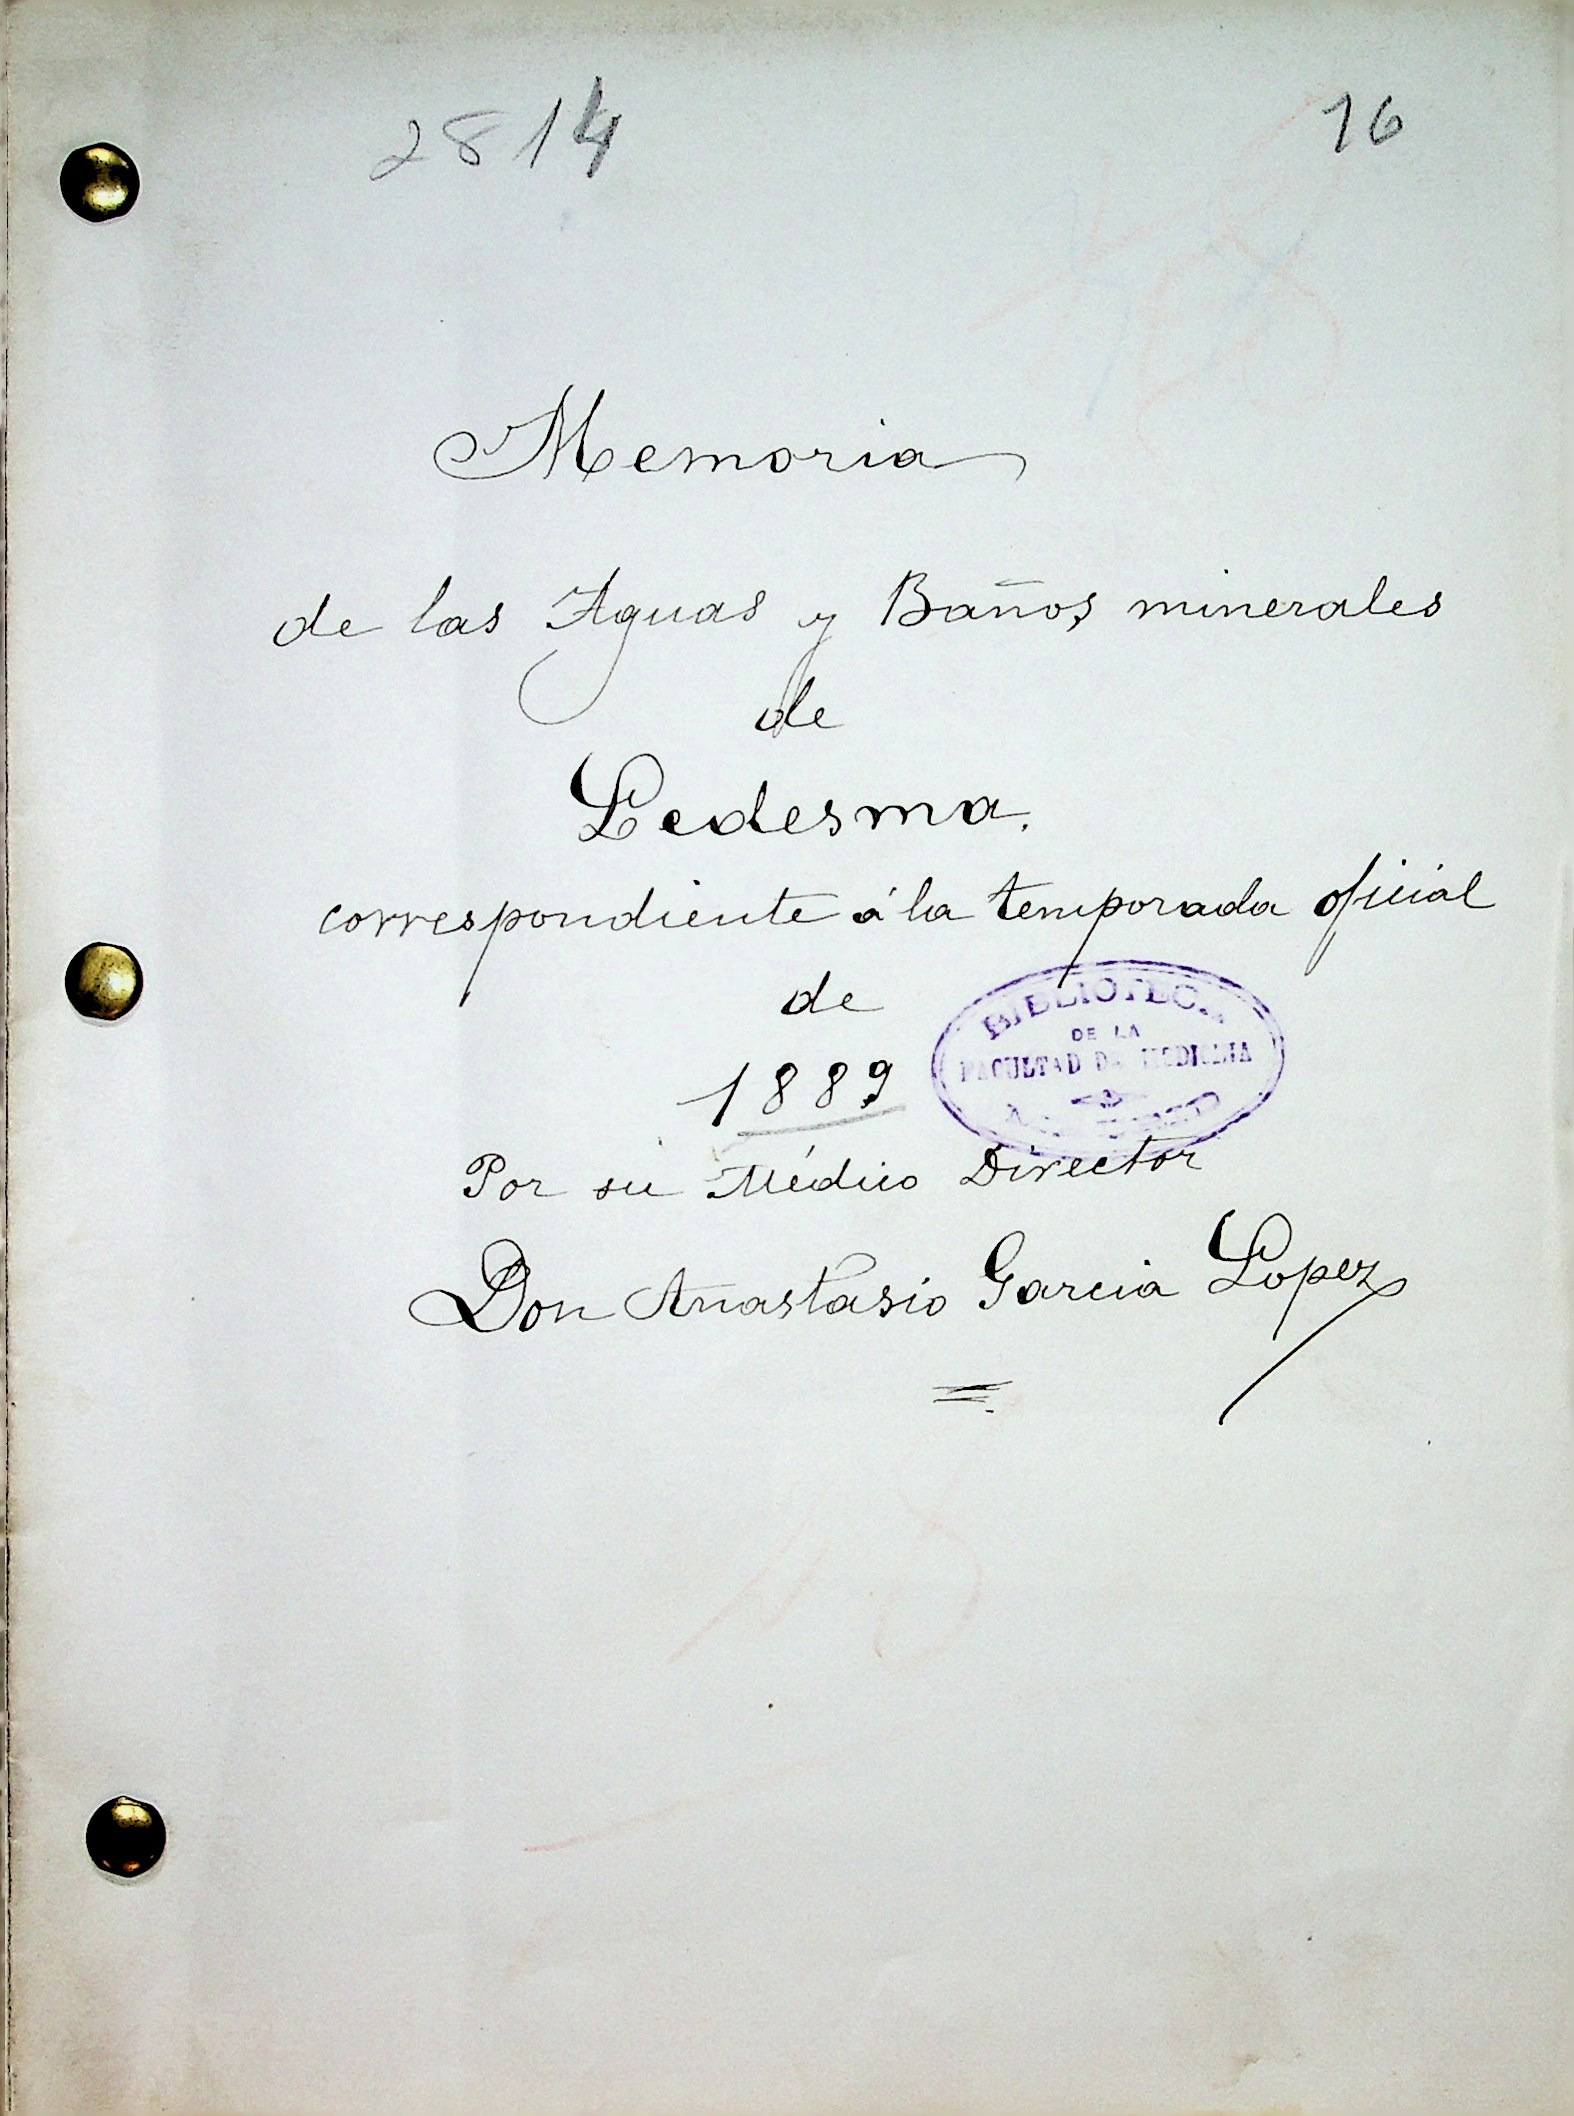 2814
16
Memoria
de las Aguas y Baños minerales
de
Ledesma.
correspondiente á la temporada oficial
de
1889
BIBLIOTECA
DE LA
FACULTAD DE MEDICINA
Por su Médico Director
Don Anastasio Garcia Lopez